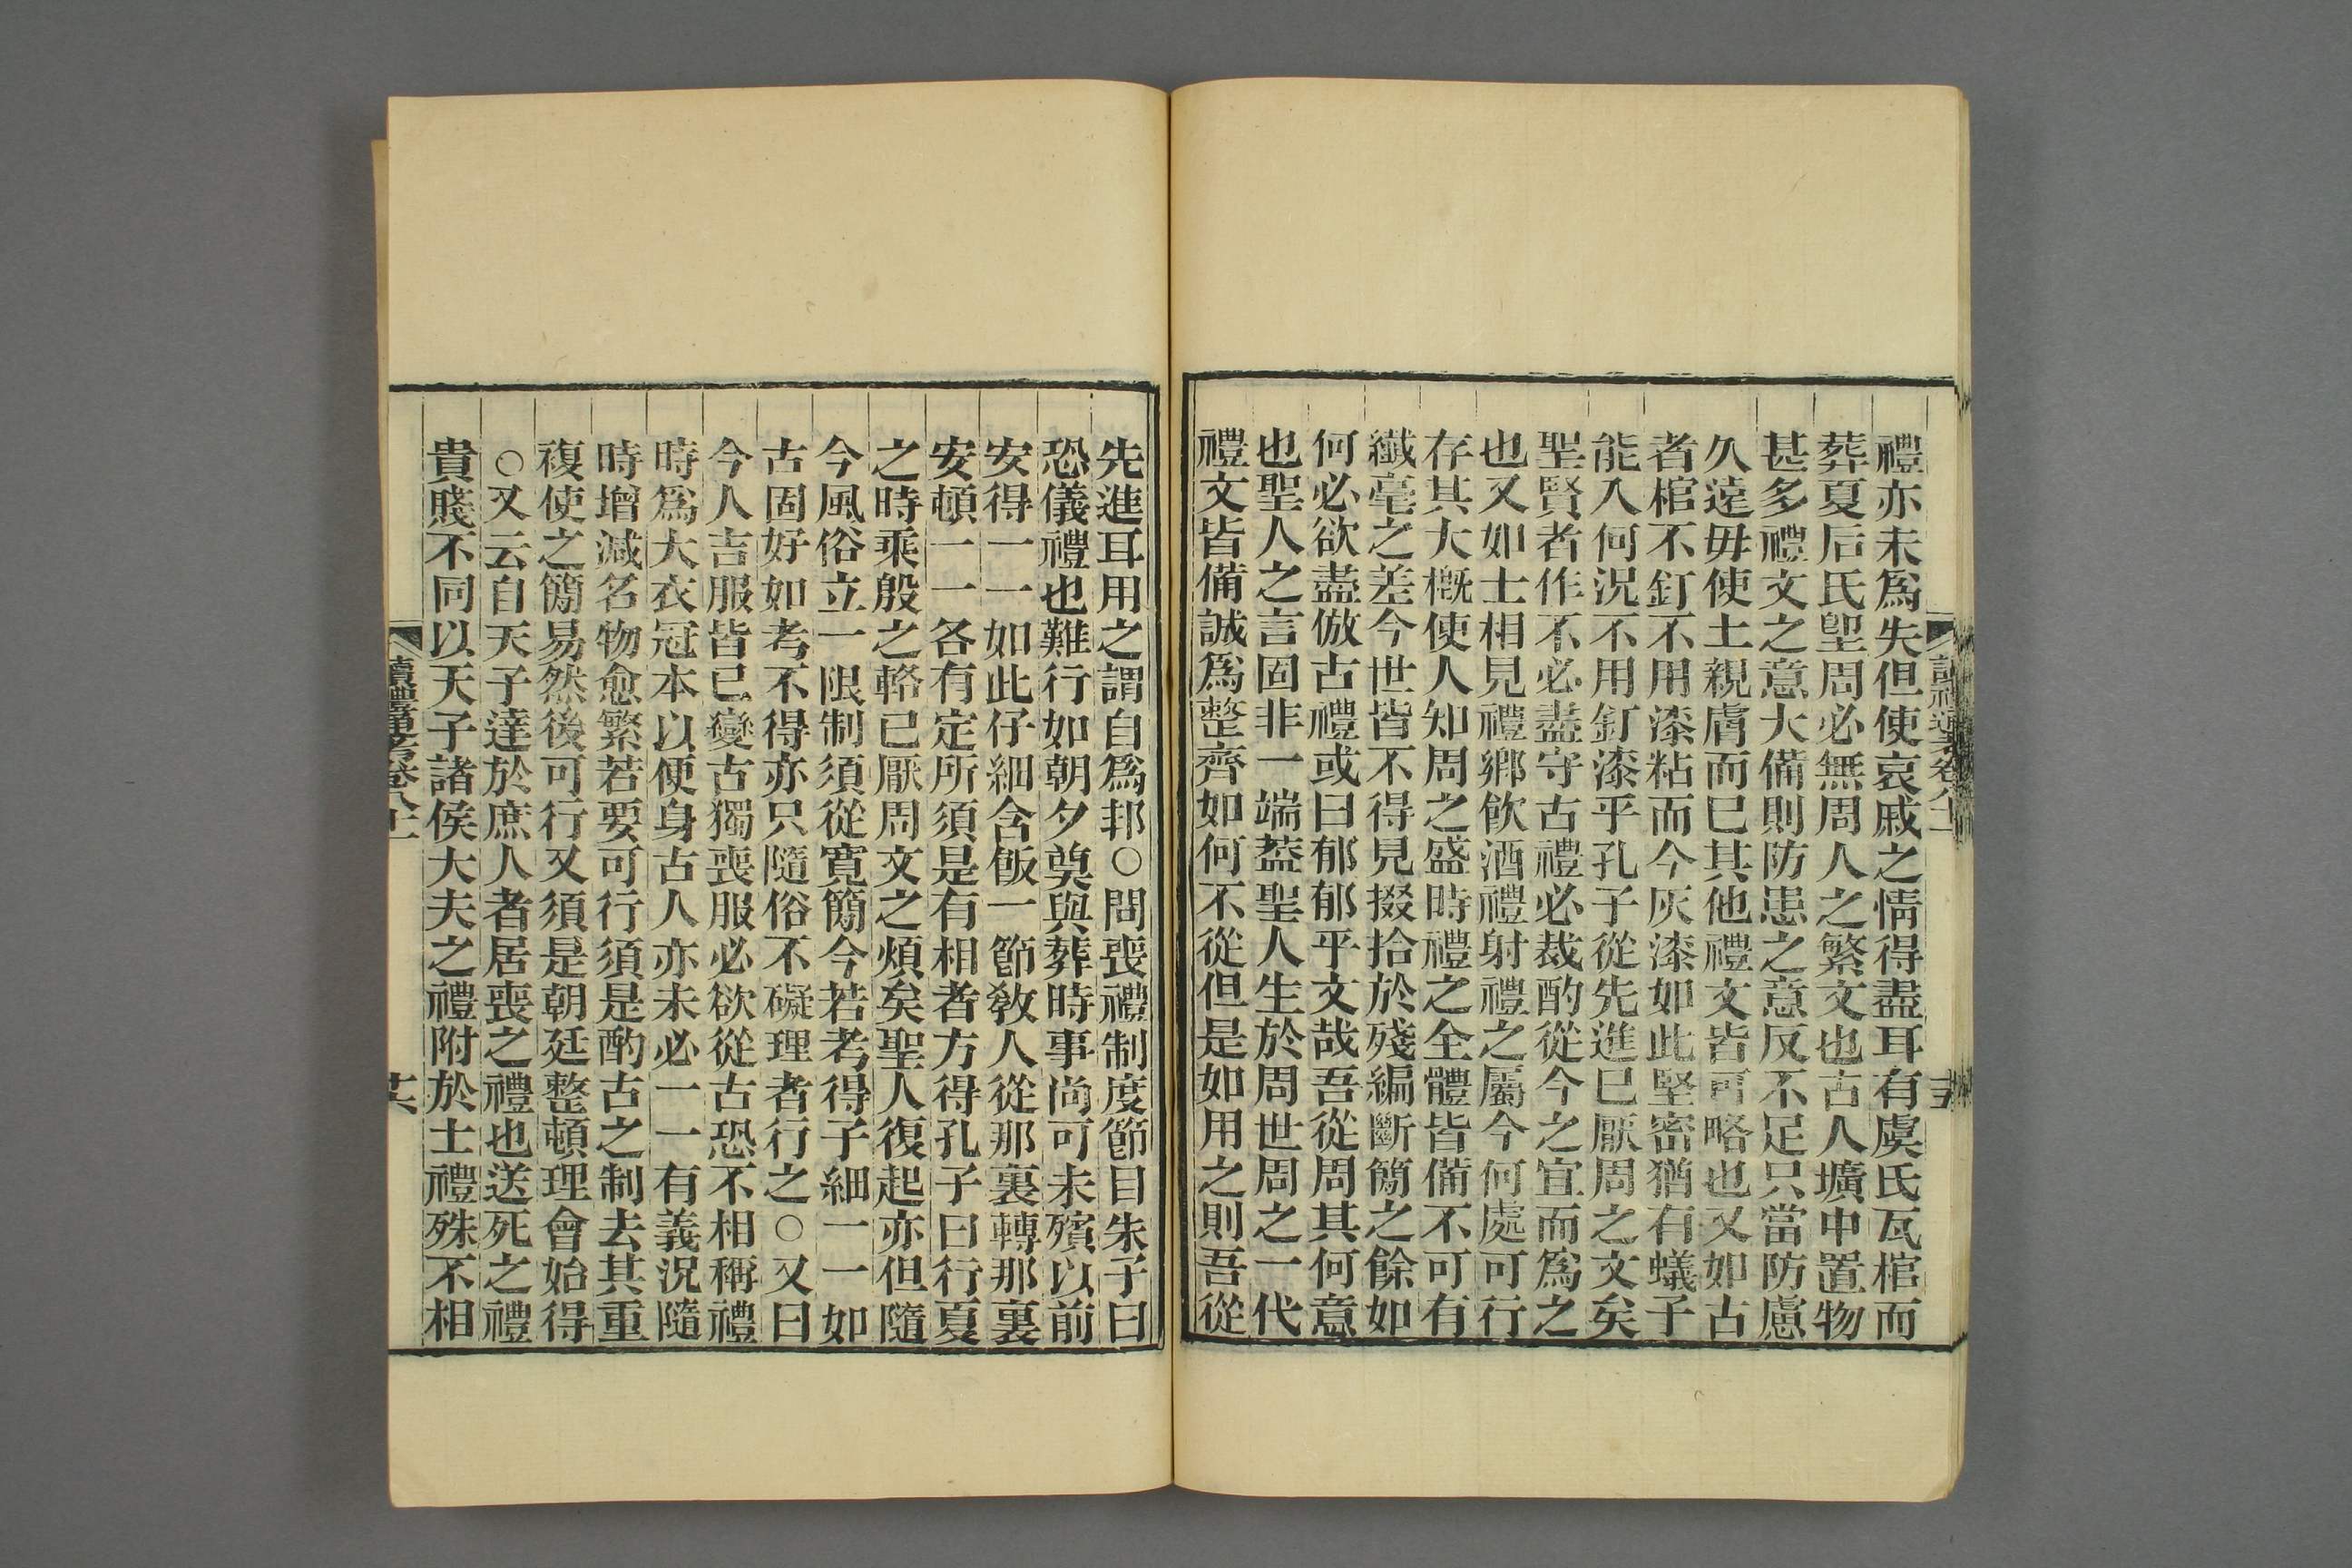 禮亦未爲失但使哀戚之情得盡耳有虞氏瓦棺而
葬夏后氏堲周必無周人之繁文也古人壙中置物
甚多禮文之意大備則防患之意反不足只當防慮
久遠毋使土親膚而已其他禮文皆可略也又如古
者棺不釘不用漆粘而今灰漆如此堅密猶有蟻子
能入何況不用釘漆乎孔子從先進已厭周之文矣
聖賢者作不必盡守古禮必裁酌從今之宜而爲之
也又如士相見禮鄉飲酒禮射禮之屬今何處可行
存其大槪使人知周之盛時禮之全體皆備不可有
纎毫之差今世皆不得見掇拾於殘編斷簡之餘如
何必欲盡倣古禮或曰郁郁乎文哉吾從周其何意
也聖人之言固非一端葢聖人生於周世周之一代
禮文皆備誠爲整齊如何不從但是如用之則吾從
先進耳用之謂自爲邦○問喪禮制度節目朱子曰
恐儀禮也難行如朝夕奠與葬時事尚可未殯以前
安得一一如此仔細含飯一節敎人從那裏轉那裏
安頓一一各有定所須是有相者方得孔子曰行夏
之時乘殷之輅已厭周文之煩矣聖人復起亦但隨
今風俗立一限制須從寬簡今若考得子細一一如
古固好如考不得亦只隨俗不礙理者行之○又曰
今人吉服皆已變古獨喪服必欲從古恐不相稱禮
時爲大衣冠本以便身古人亦未必一一有義況隨
時增減名物愈繁若要可行須是酌古之制去其重
複使之簡易然後可行又須是朝廷整頓理會始得
○又云自天子達於庶人者居喪之禮也送死之禮
貴賤不同以天子諸侯大夫之禮附於士禮殊不相
讀禮通考卷八十一
十六